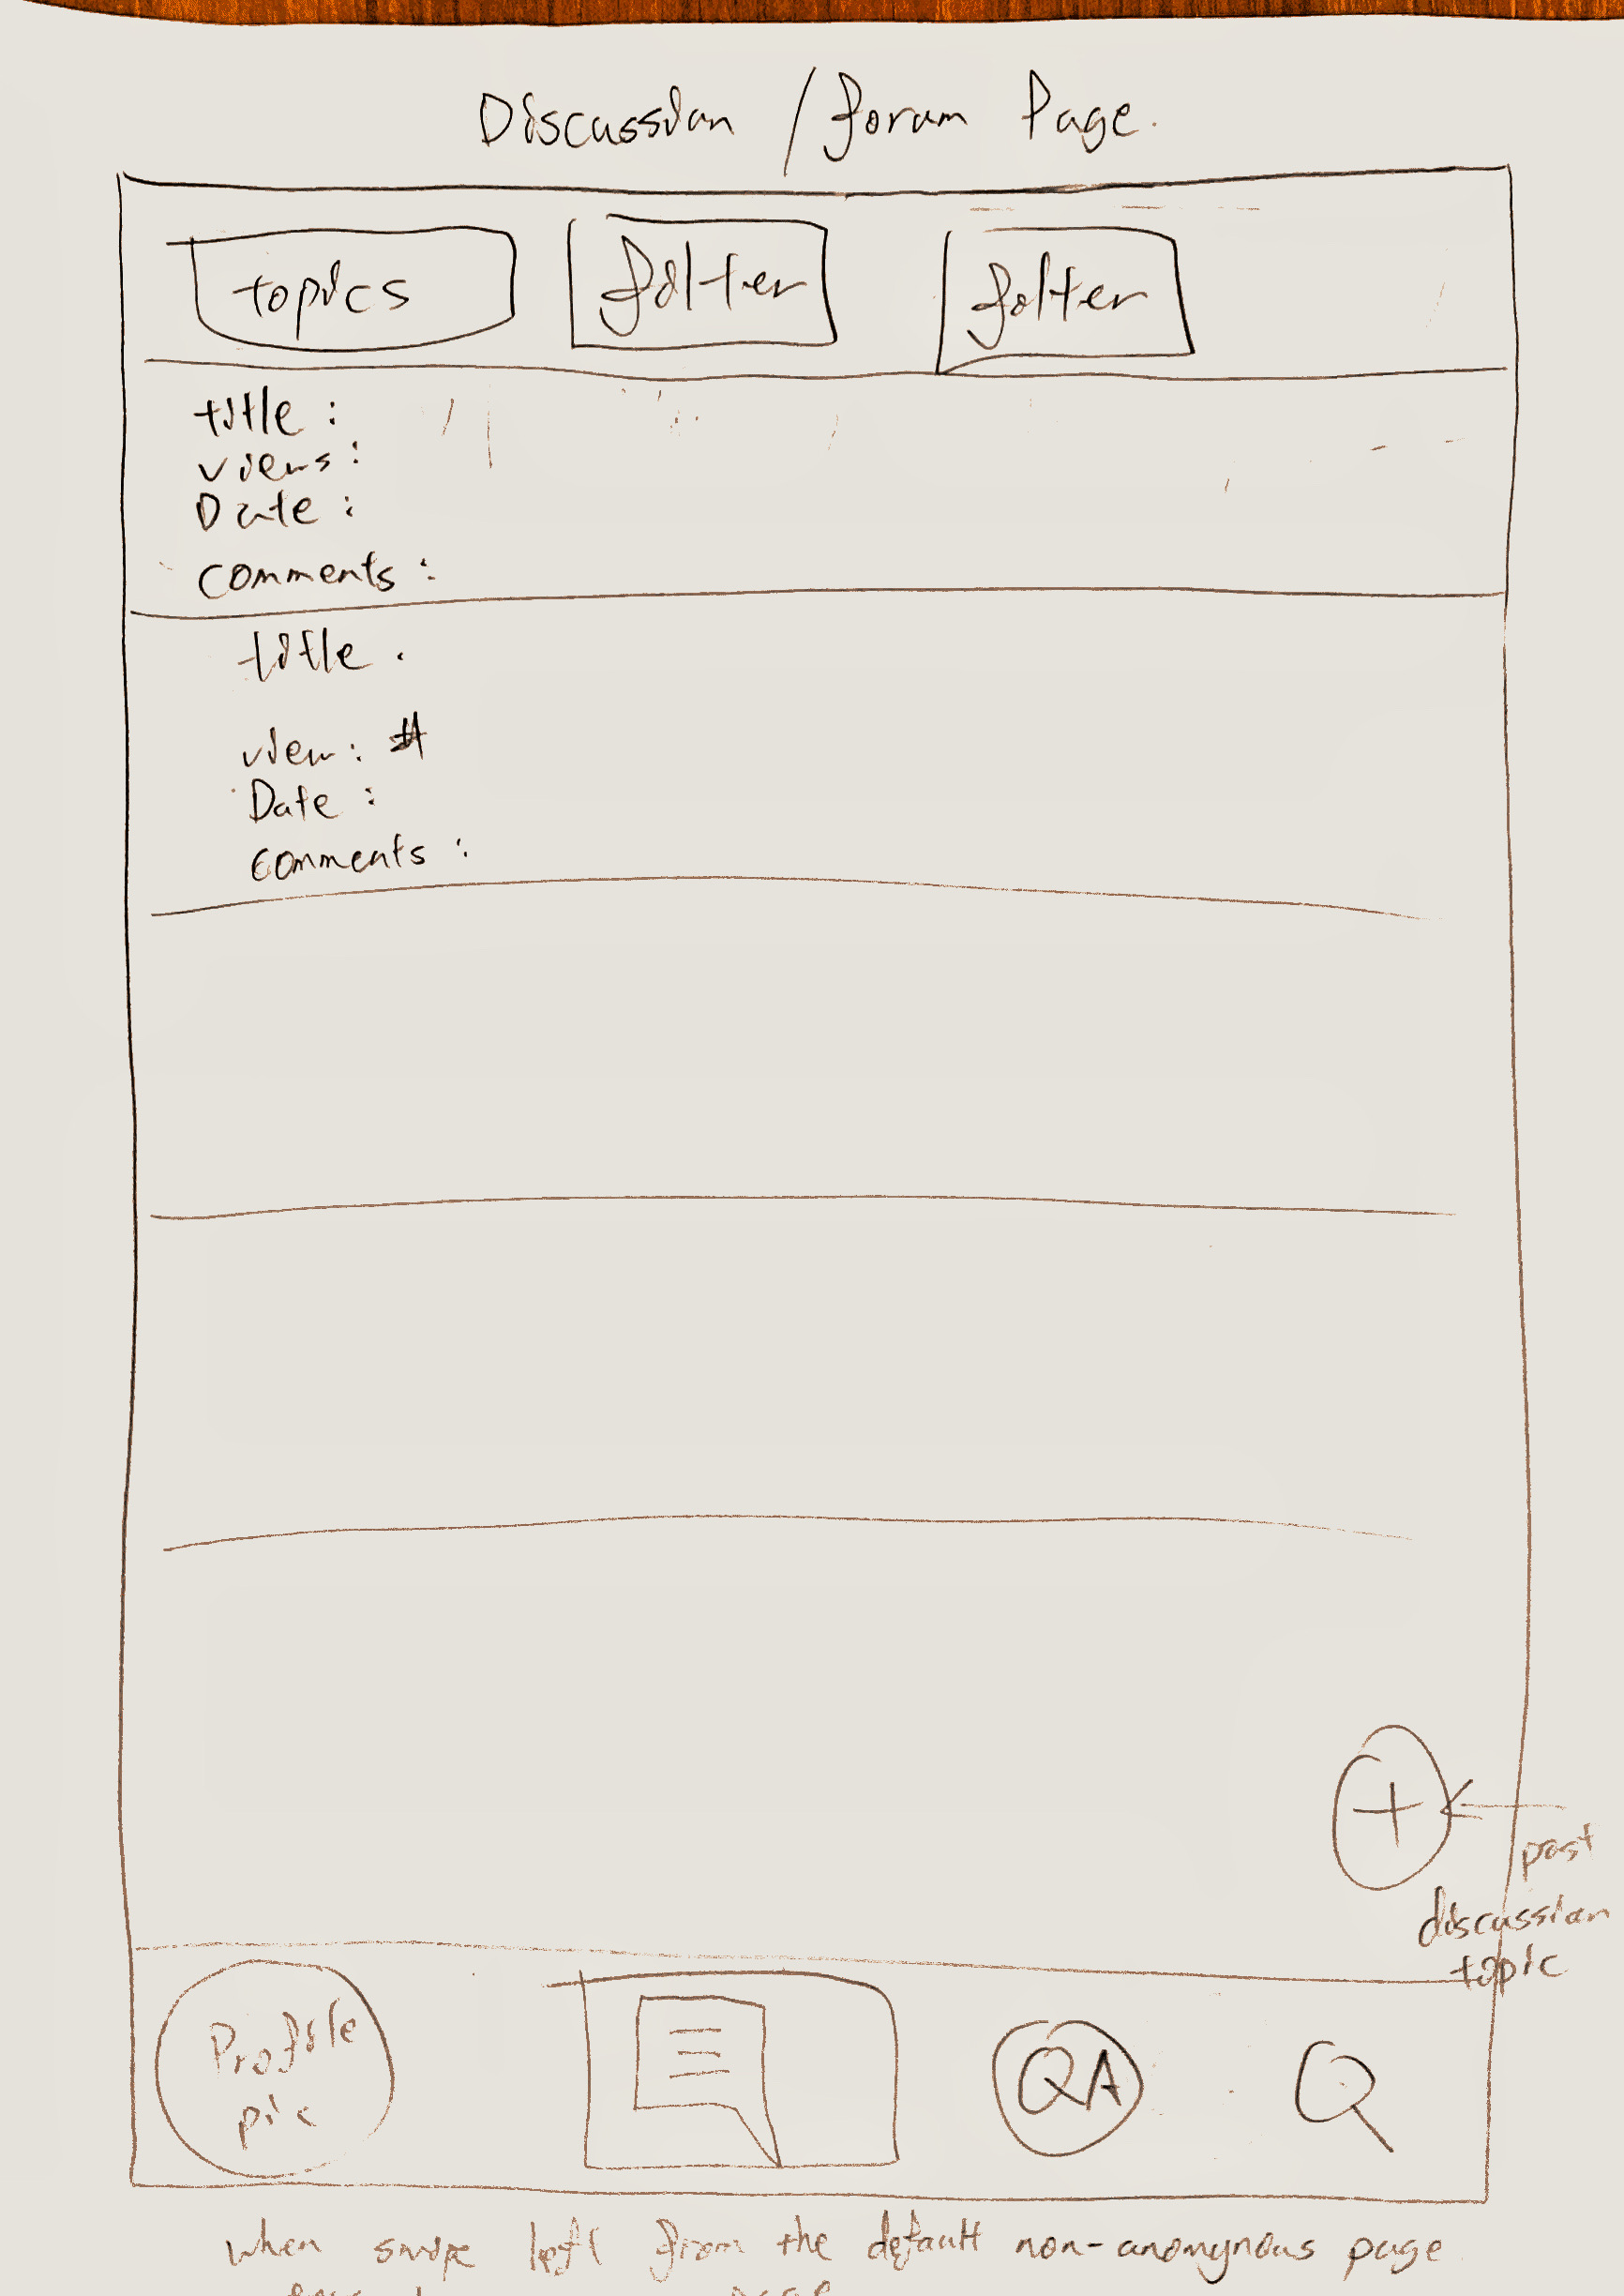 Discussion / forum Page.
topics filter filter
title :
views :
Date :
comments :
title .
view : #
Date :
comments :
+
post
discussion
topic
Profile
pic
QA
when swipe left from the default non-anomynous page
page